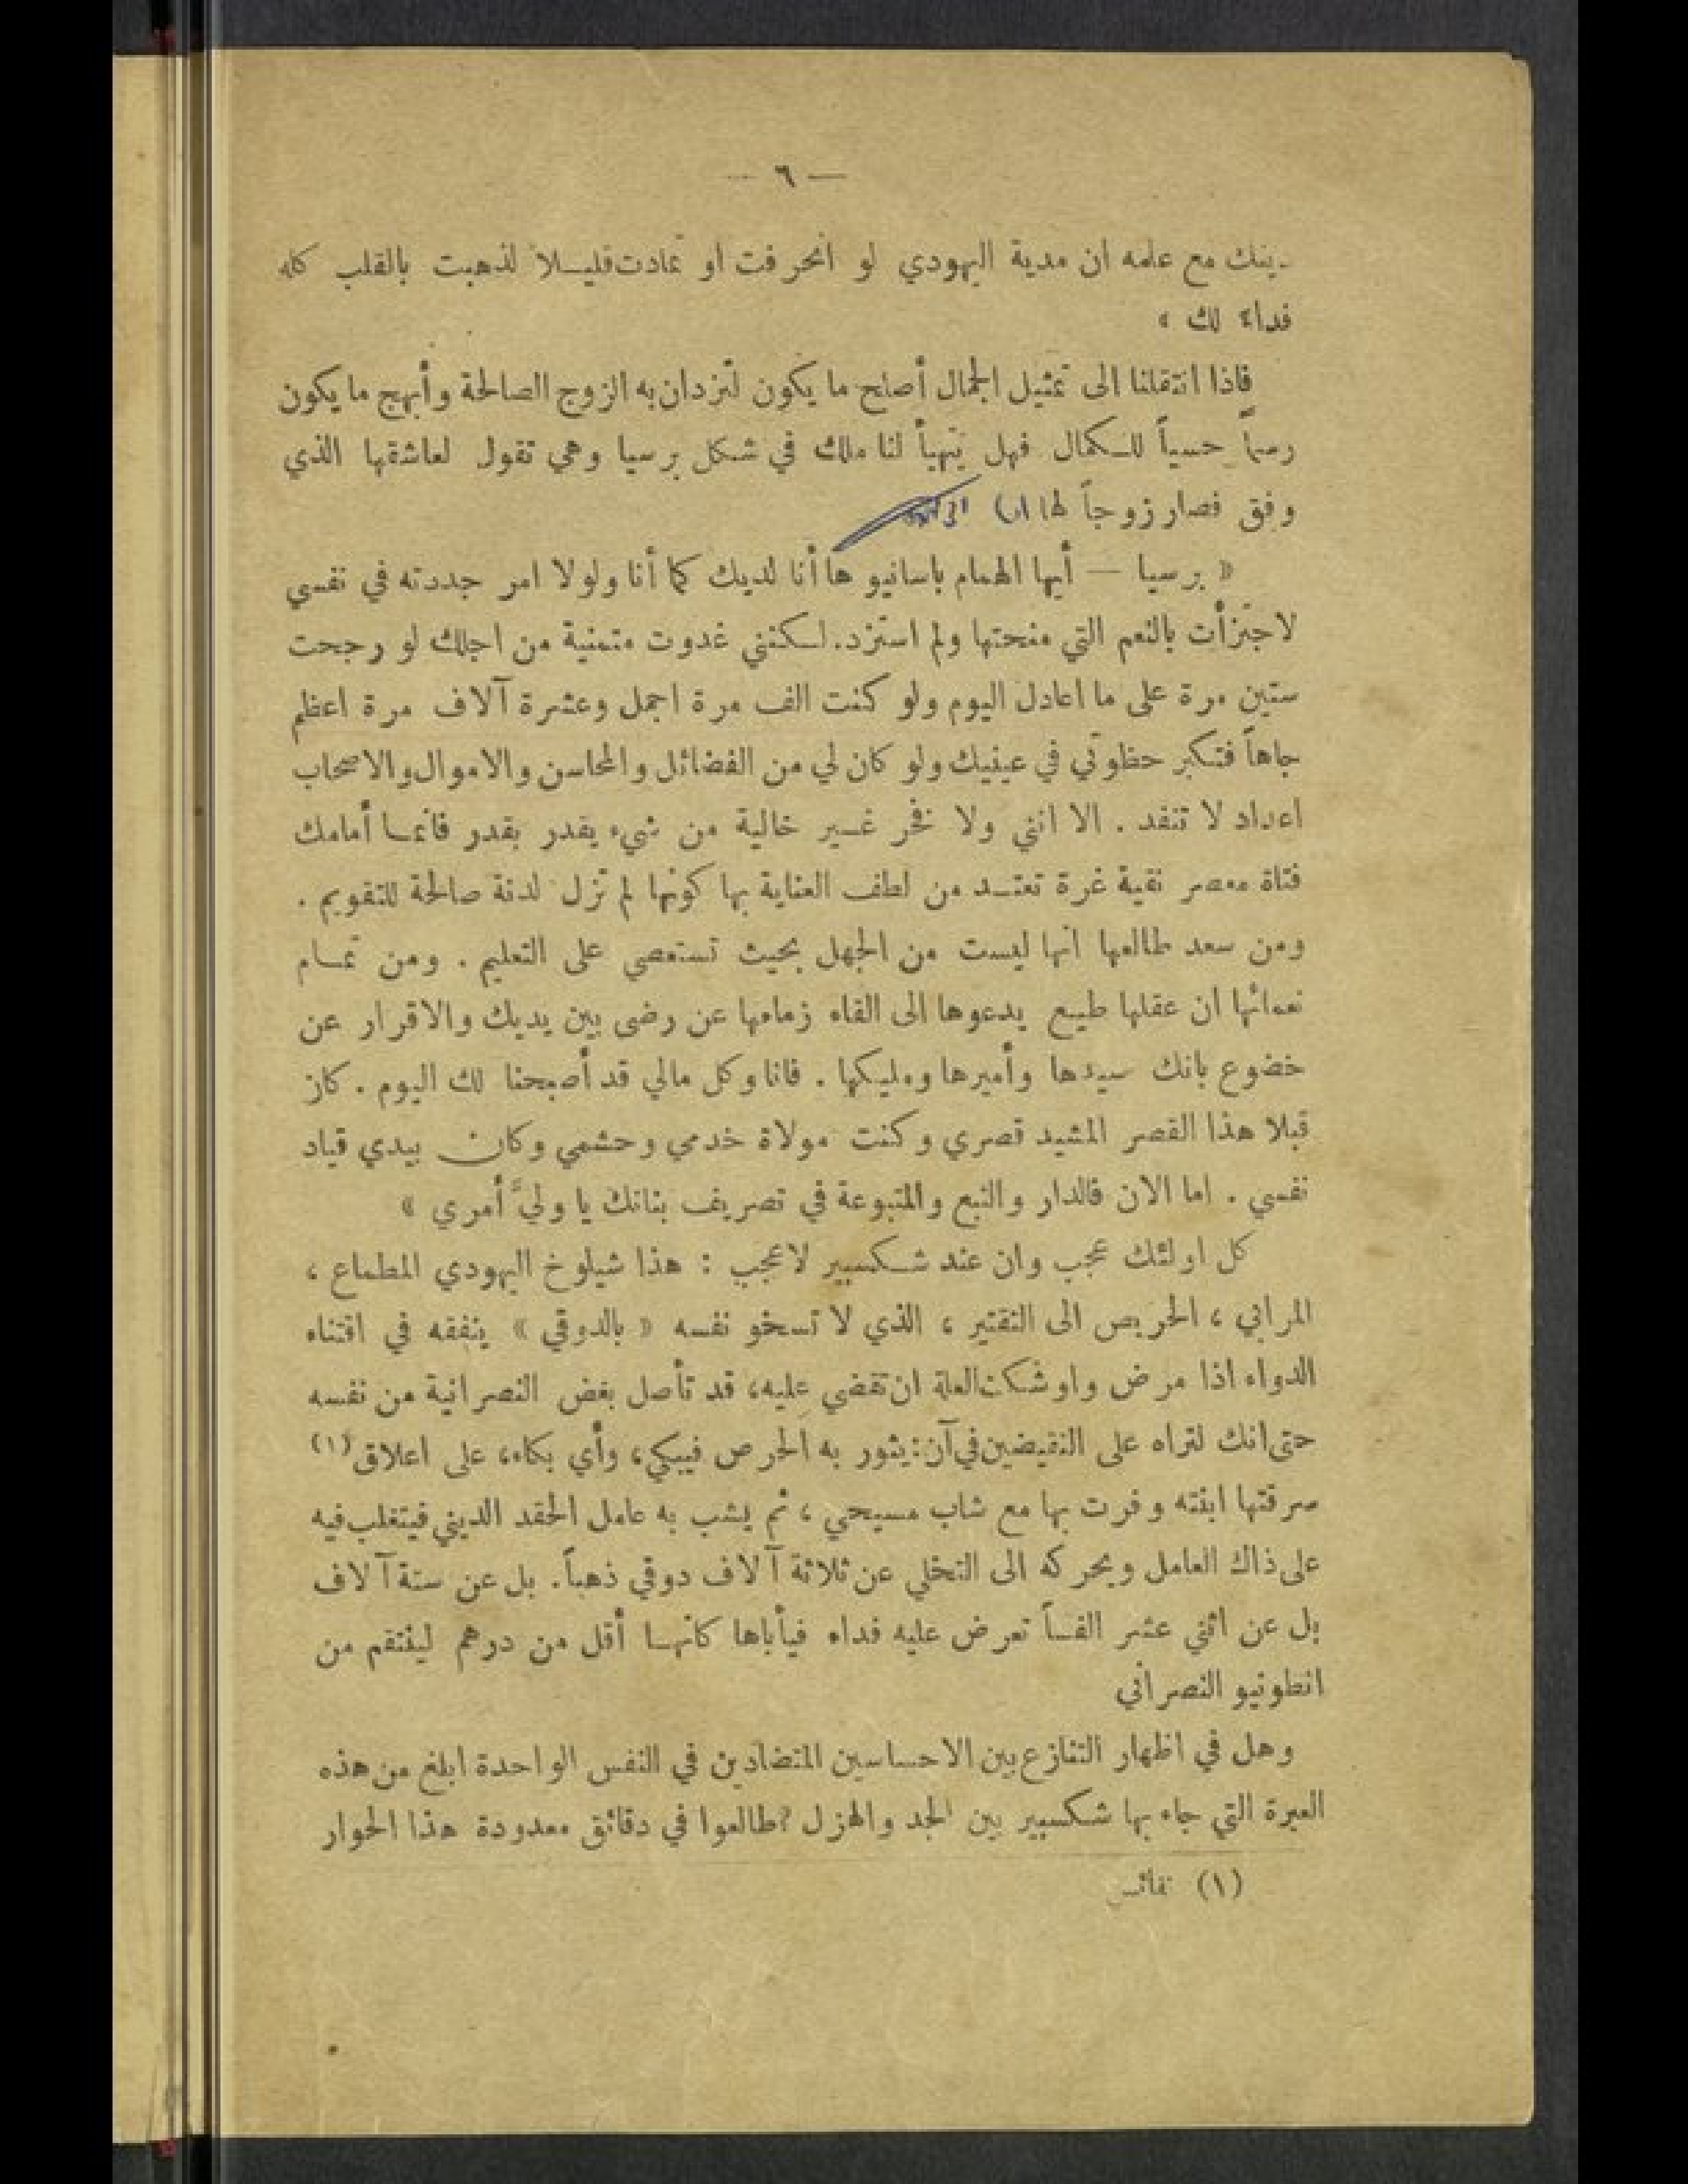 — ٦ —
دينك مع علمه ان مدية اليهودي لو انحرفت او تمادت قليلا لذهبت بالقلب كله
فداء لك »
فاذا انتقلنا الى تمثيل الجمال أصلح ما يكون لتزدان به الزوج الصالحة وأبهج ما يكون
رسماً حسياً للكمال فهل يتهيأ لنا ملك في شكل برسيا وهي تقول لعاشقها الذي
وفق فصار زوجاً لها
« برسيا — أيها الهمام باسانيو ها أنا لديك كما أنا ولولا امر جددته في نفسي
لاجتزأت بالنعم التي منحتها ولم استزد. لكنني غدوت متمنية من اجلك لو رجحت
ستين مرة على ما اعادل اليوم ولو كنت الف مرة اجمل وعشرة آلاف مرة اعظم
جاهاً فتكبر حظوتي في عينيك ولو كان لي من الفضائل والمحاسن والاموال والاصحاب
اعداد لا تنفد . الا انني ولا فخر غير خالية من شيء يقدر بقدر فانما أمامك
فتاة معصر نقية غرة تعتد من لطف العناية بها كونها لم تزل لدنة صالحة للتقويم .
ومن سعد طالعها انها ليست من الجهل بحيث تستعصي على التعليم . ومن تمام
نعمائها ان عقلها طيع يدعوها الى القاء زمامها عن رضى بين يديك والاقرار عن
خضوع بانك سيدها وأميرها ومليكها . فانا وكل مالي قد أصبحنا لك اليوم . كان
قبلا هذا القصر المشيد قصري وكنت مولاة خدمي وحشمي وكان بيدي قياد
نفسي . اما الان فالدار والتبع والمتبوعة في تصريف بنانك يا وليَّ أمري »
كل اولئك عجب وان عند شكسبير لاعجب : هذا شيلوخ اليهودي المطماع ،
المرابي ، الحريص الى التقتير ، الذي لا تسخو نفسه « بالدوقي » ينفقه في اقتناء
الدواء اذا مرض واوشكت العلة ان تقضي عليه، قد تأصل بغض النصرانية من نفسه
حتى انك لتراه على النقيضين في آن: يثور به الحرص فيبكي، وأي بكاء، على اعلاق (١)
سرقتها ابنته وفرت بها مع شاب مسيحي ، ثم يشب به عامل الحقد الديني فيتغلب فيه
على ذاك العامل ويحركه الى التخلي عن ثلاثة آلاف دوقي ذهباً. بل عن ستة آلاف
بل عن اثني عشر الفاً تعرض عليه فداء فيأباها كانها أقل من درهم لينتقم من
انطونيو النصراني
وهل في اظهار التنازع بين الاحساسين المتضادين في النفس الواحدة ابلغ من هذه
العبرة التي جاء بها شكسبير بين الجد والهزل ? طالعوا في دقائق معدودة هذا الحوار
(١) نفائس